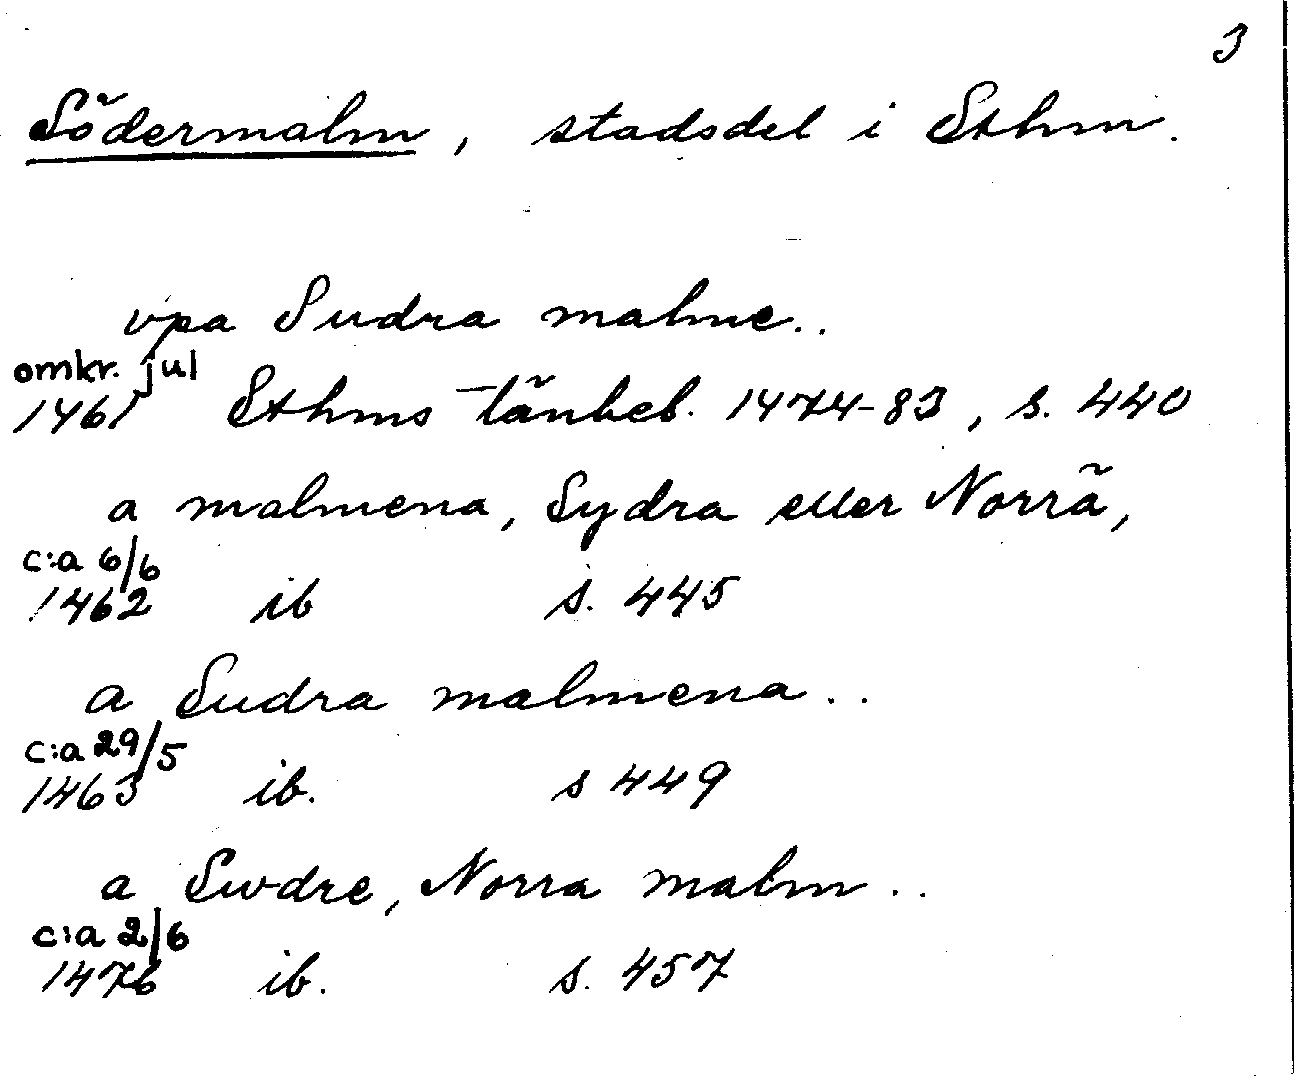 3
Södermalm, stadsdel i Sthm.
vpa Sudra malme..
omkr. jul
1461 Sthms tänkeb. 1474-83, s. 440
a malmena, Sydra eller Norrã,
c:a 6/6
1462 ib s. 445
a Sudra malmena..
c:a 29/5
1463 ib. s 449
a Swdre, Norra malm..
c:a 2/6
1476 ib. s. 457